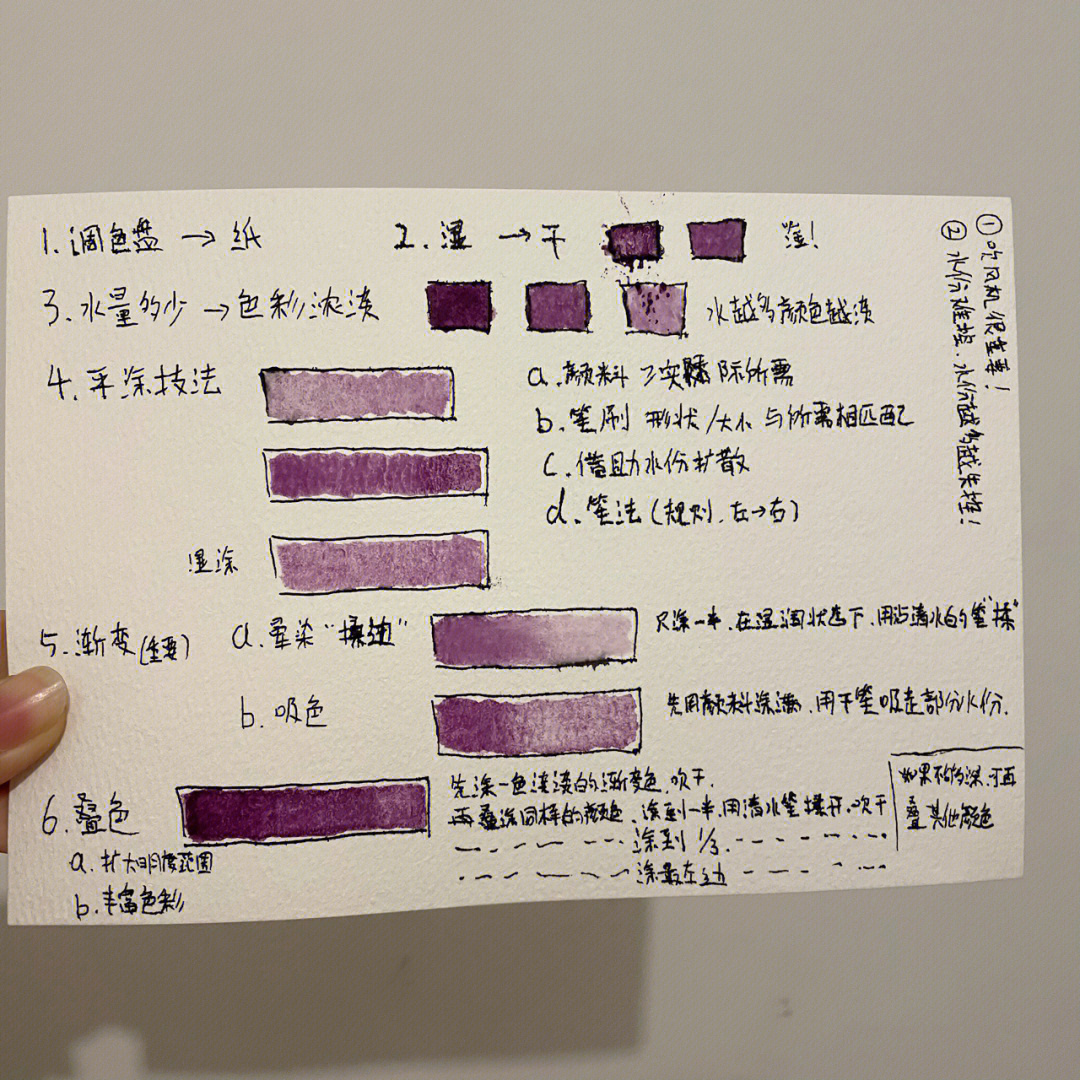 1. 调色盘 → 纸
2. 湿 → 干
3. 水量多少 → 色彩浓淡
水越多颜色越淡
4. 平涂技法
a. 颜料 实际所需
b. 笔刷 形状/大小 与所需相匹配
c. 借助水份扩散
d. 笔法(规则. 左→右)
湿涂
5. 渐变(重要)
a. 晕染“揉边”
只涂一半. 在湿润状态下. 用沾清水的笔“揉”
b. 吸色
先用颜料涂满, 用干笔吸走部分水份.
6. 叠色
a. 扩大明度范围
b. 丰富色彩
先涂一色 的渐变色, 吹干.
再叠涂同样的颜色. 涂到一半. 用清水笔揉开. 吹干
涂到 1/3.
涂最左边
如果不够深. 可再
叠其他颜色
① 吹风机很重要!
② 水份难控. 水份越多越失控!